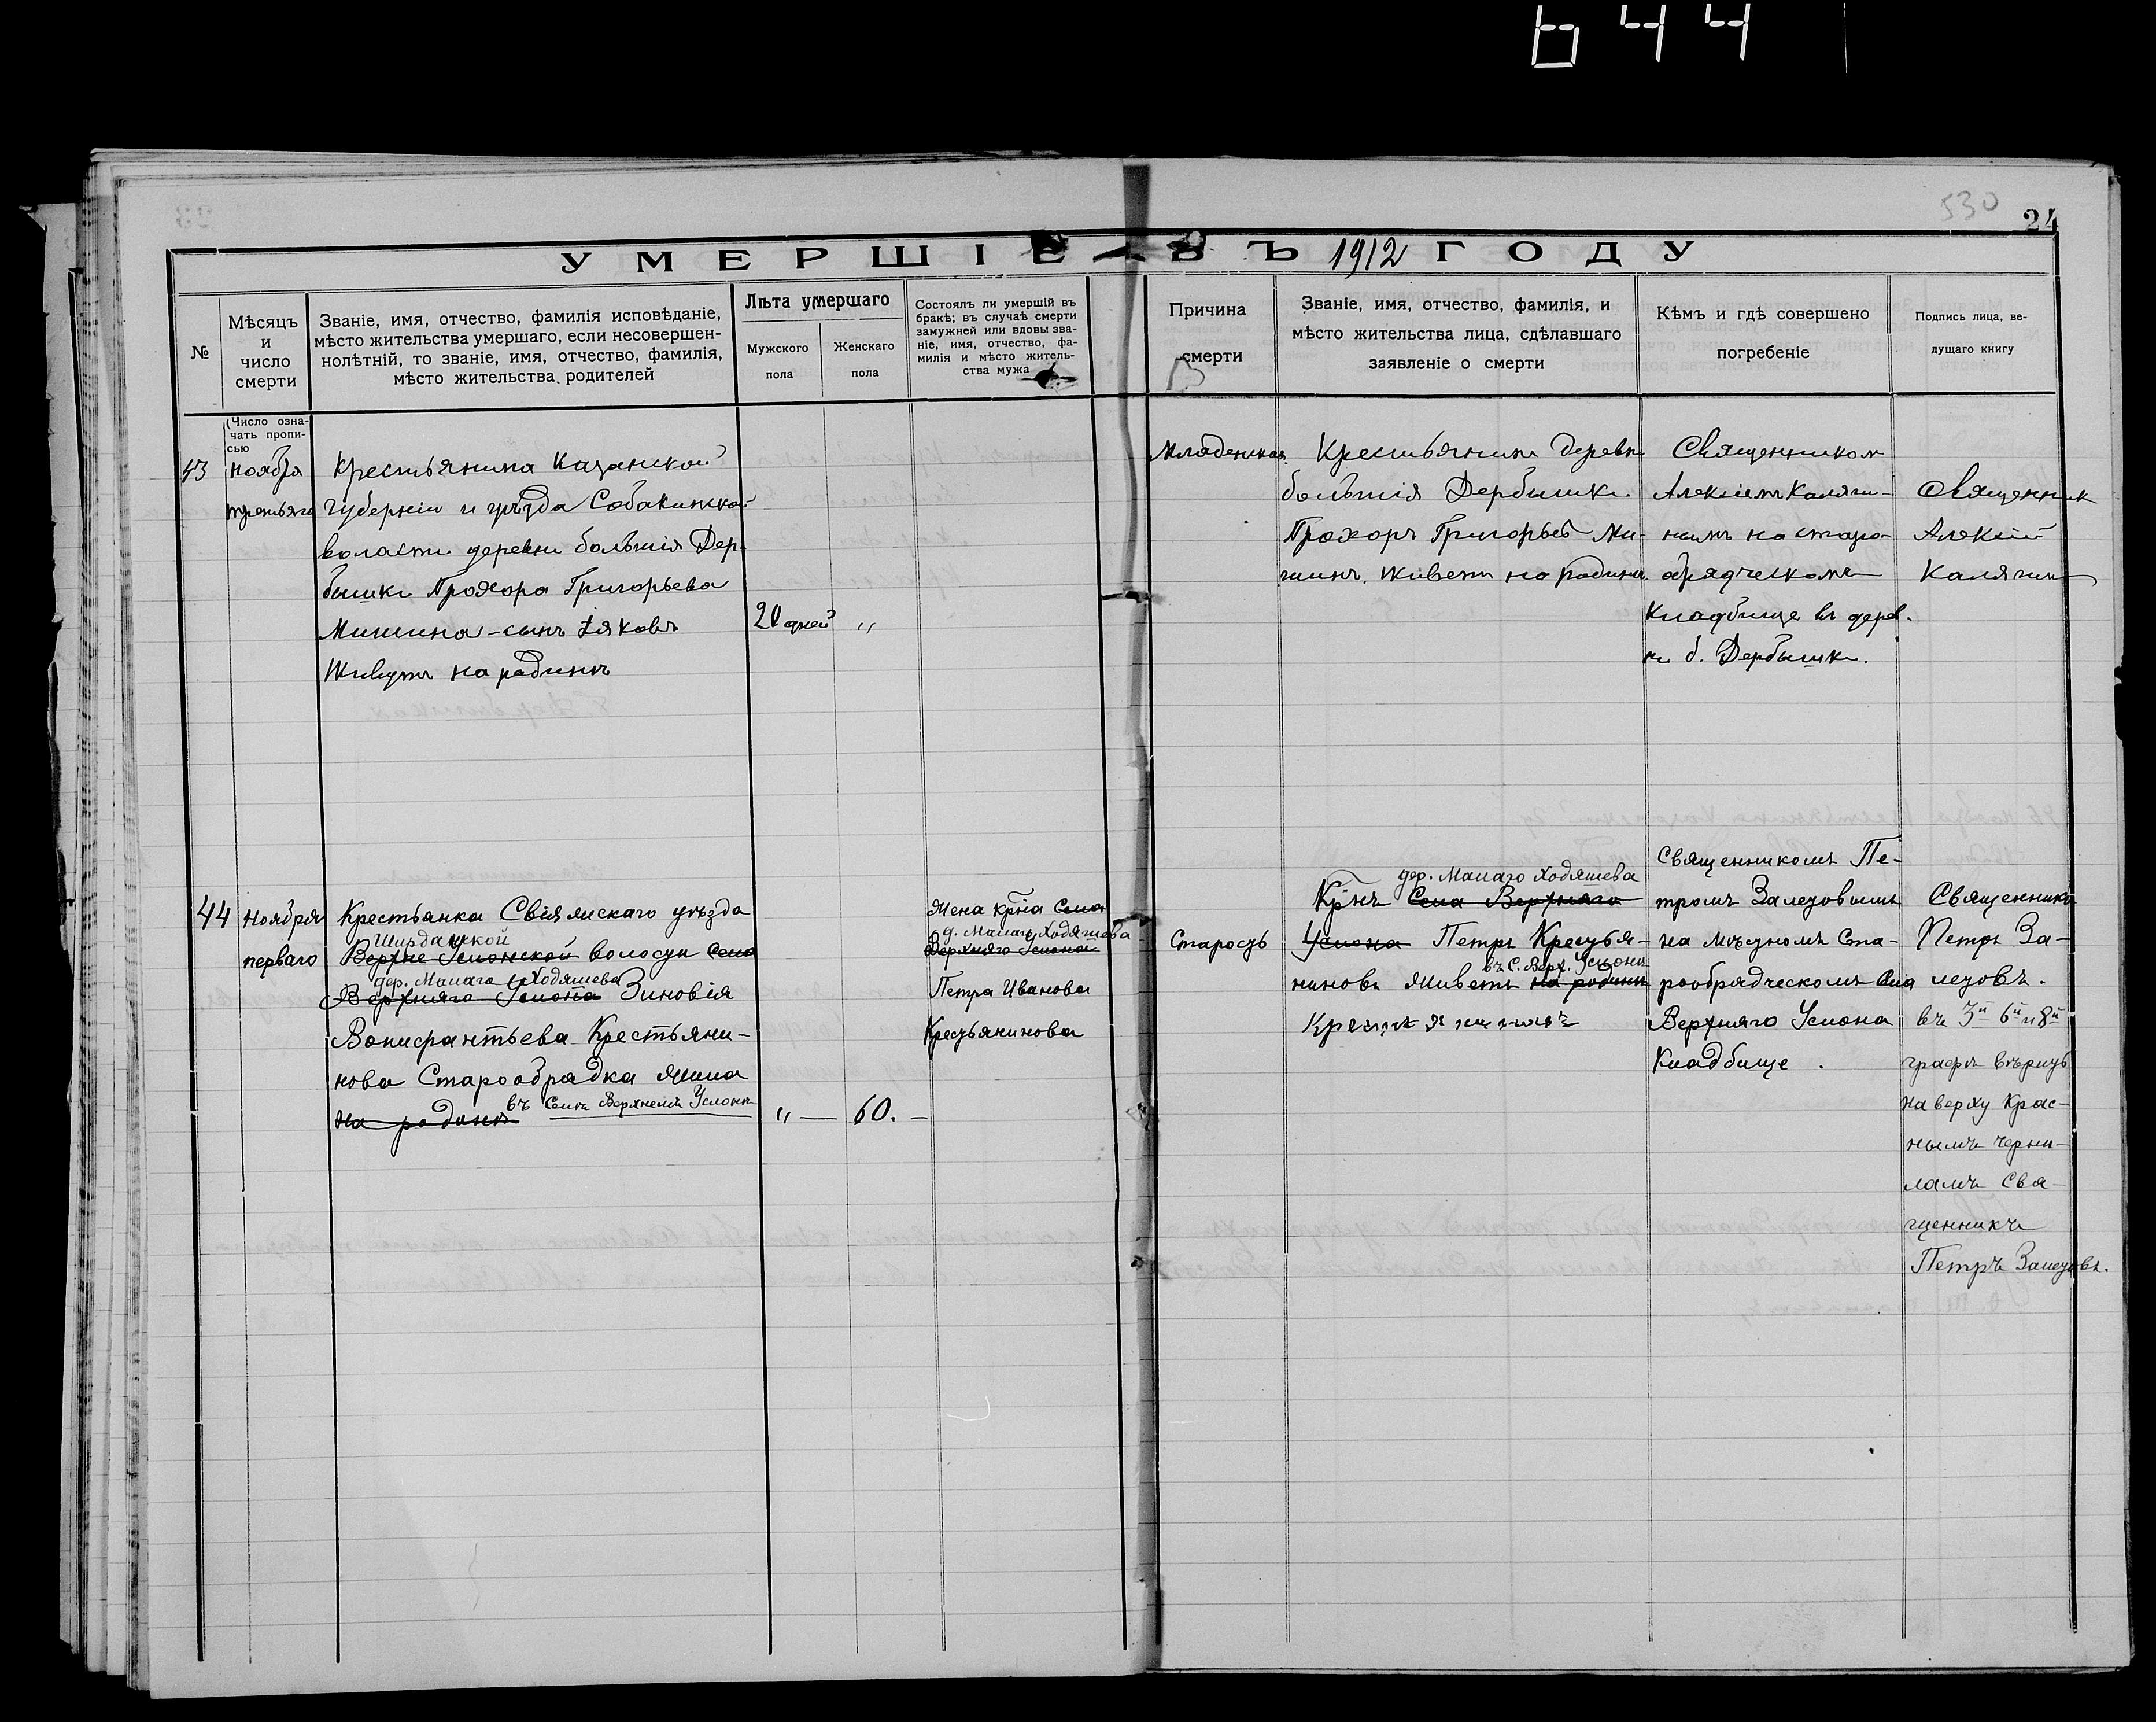 644
530
24
УМЕРШІЕ ВЪ 1912 ГОДУ
№
Мѣсяцъ
и
число
смерти
Званіе, имя, отчество, фамилія исповѣданіе,
мѣсто жительства умершаго, если несовершен-
нолѣтній, то званіе, имя, отчество, фамилія,
мѣсто жительства родителей
Лѣта умершаго
Мужского
пола
Женскаго
пола
Состоялъ ли умершій въ
бракѣ; въ случаѣ смерти
замужней или вдовы зва-
ніе, имя, отчество, фа-
милія и мѣсто житель-
ства мужа
Причина
смерти
Званіе, имя, отчество, фамилія, и
мѣсто жительства лица, сдѣлавшаго
заявленіе о смерти
Кѣмъ и гдѣ совершено
погребеніе
Подпись лица, ве-
дущаго книгу
(Число озна-
чать пропи-
сью
43
Ноября
третьяго
Крестьянина Казанской
губерніи и уѣзда Собакинской
волости деревни большія Дер-
бышки Прохора Григорьева
Мишина - сынъ Яковъ
Живутъ на родинѣ
20 дней
"
Младенческая
Крестьянинъ деревни
большія Дербышки
Прохоръ Григорьев Ми-
шинъ. Живетъ на родинѣ.
Священником
Алексіемъ Каляги-
нымъ на старо-
обрядческомъ
кладбище въ дерев-
ни б. Дербышки.
Священник
Алексій
Калягинъ
44
Ноября
перваго
Крестьянка Свіяжскаго уѣзда
Ширданской
Верхне Услонской волости Села
дер. Малаго Ходяшева
Верхняго Услона Зиновія
Вонифантьева Крестьяни-
нова Старообрядка жила
въ Селѣ Верхнемъ Услонѣ
на родинѣ
" —
60. —
Жена кр̃на Села
д. Малаго Ходяшева
Верхняго Услона
Петра Иванова
Крестьянинова
Старость
дер. Малаго Ходяшева
Кр̃нъ Села Верхняго
Услона Петръ Крестья-
въ С. Верх. Услонѣ
ниновъ живетъ на родинѣ
Крестьяниновъ
Священникомъ Пе-
тромъ Залетовымъ
на мѣстномъ Ста-
рообрядческомъ Села
Верхняго Услона
Кладбище.
Священникъ
Петръ За-
летовъ.
въ 3й 6й и 8й
графѣ вѣрить
на верху Крас-
нымъ черни-
ламъ Свя-
щенникъ
Петръ Залетовъ.